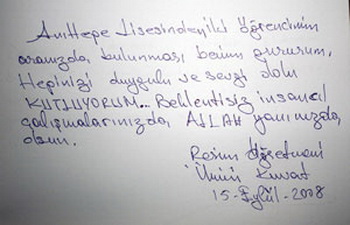 Anıttepe Lisesindeyiki öğrencimin
aramızda bulunması benim gururum.
Hepinizi duygulu ve sevgi dolu
KUTLUYORUM... Beklentisiz insancıl
çalışmalarınızda ALLAH yanınızda
olsun.
Resim Öğretmeni
Ümit Kuvat
15-Eylül-2008